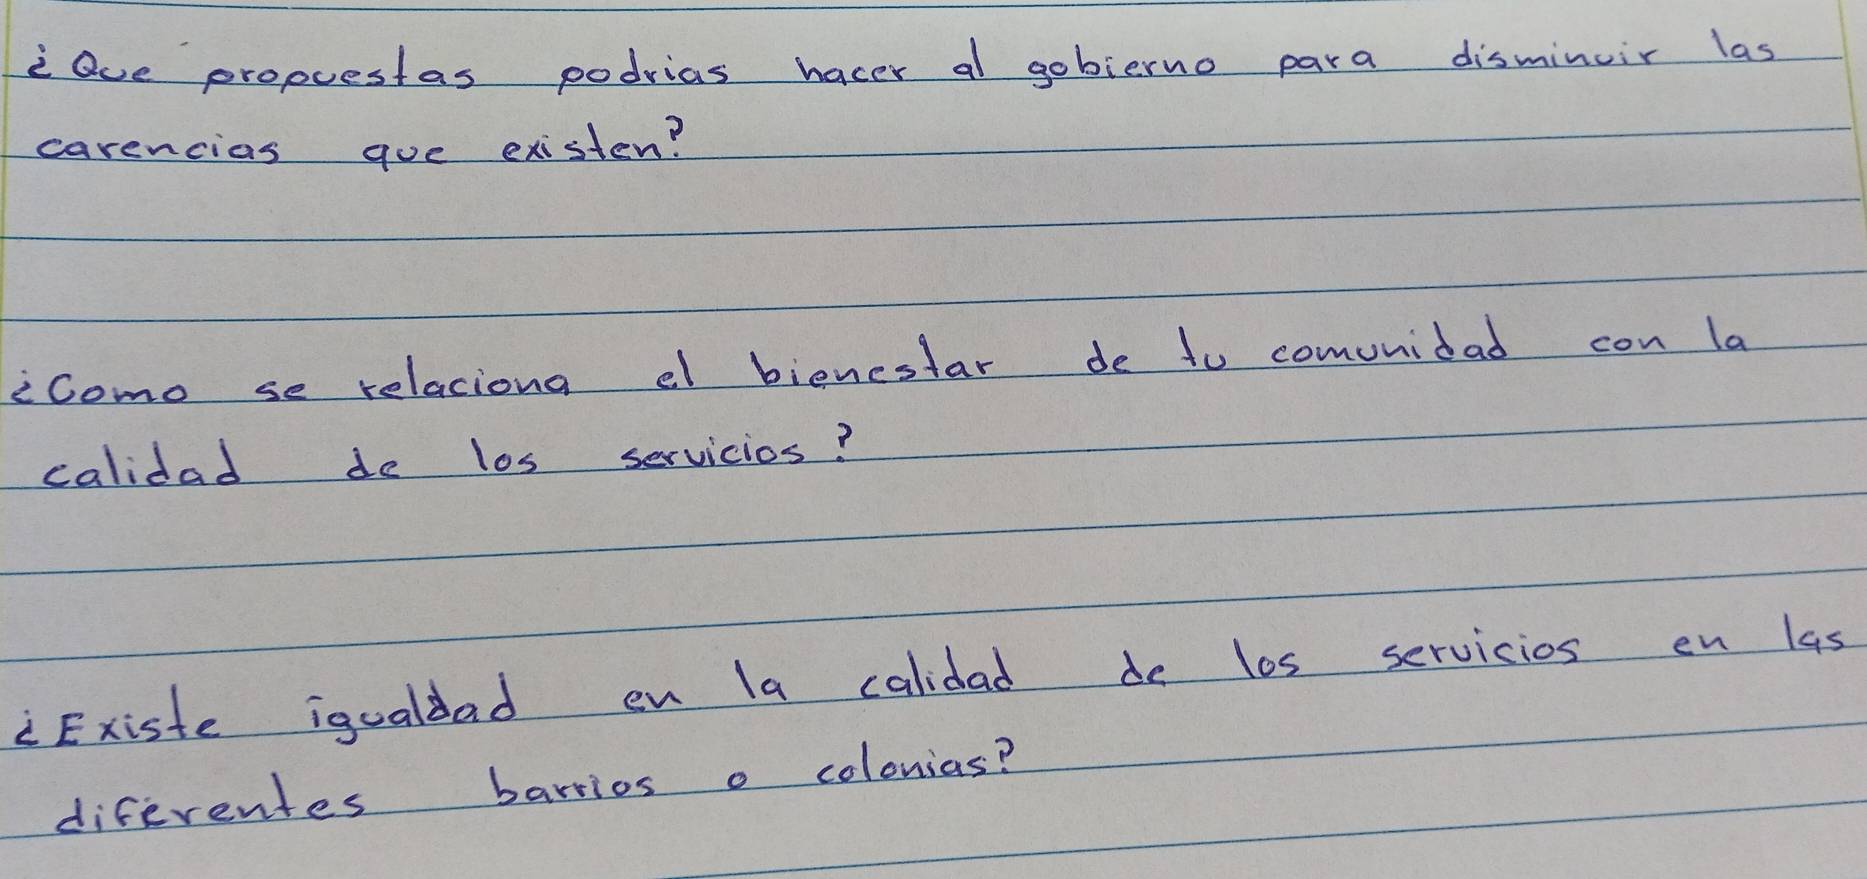 ¿Que propuestas podrias hacer al gobierno para disminuir las
carencias que existen?
¿Como se relaciona el bienestar de tu comunidad con la
calidad de los servicios?
¿Existe igualdad en la calidad de los servicios en las
diferentes barrios o colonias?